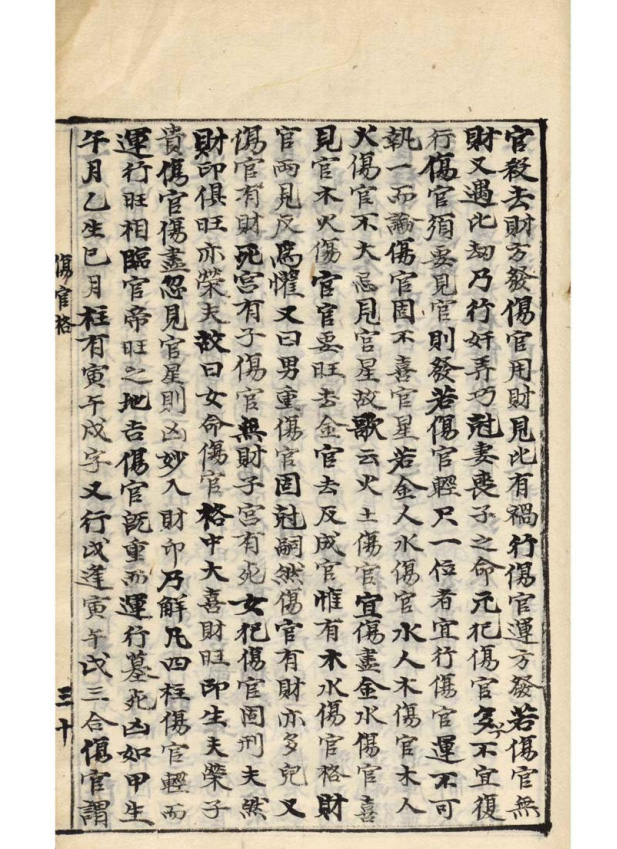 官殺去財方發傷官用財見比有禍行傷官運方發若傷官無
財又遇比刼乃行奸弄巧尅妻喪子之命元犯傷官多不宜復
行傷官須要見官則發若傷官輕只一位者宜行傷官運不可
執一而論傷官固不喜官星若金人水傷官水人木傷官木人
火傷官不大忌見官星故歌云火土傷官宜傷盡金水傷官喜
見官木火傷官官要旺去金官去反成官惟有木水傷官格財
官兩見反為懽又曰男重傷官固尅嗣然傷官有財亦多兒又
傷官有財死宮有子傷官無財子宮有死女犯傷官固刑夫然
財印俱旺亦榮夫故曰女命傷官格中大喜財旺印生夫榮子
貴傷官傷盡忽見官星則凶妙入財印乃解凡四柱傷官輕而
運行旺相臨官帝旺之地吉傷官旣重而運行墓死凶如甲生
午月乙生巳月柱有寅午戌字又行戌逢寅午戌三合傷官謂
傷官格
三十